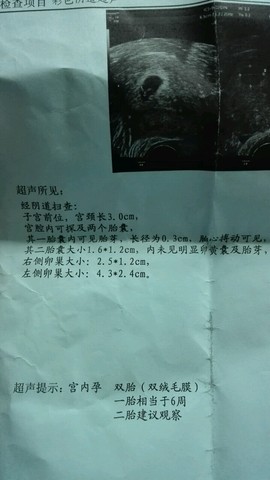 检查项目
超声所见：
经阴道扫查：
子宫前位，宫颈长3.0cm，
宫腔内可探及两个胎囊，
其一胎囊内可见胎芽，长径为0.3cm，胎心搏动可见，
其二胎囊大小1.6*1.2cm，内未见明显卵黄囊及胎芽，
右侧卵巢大小：2.5*1.2cm，
左侧卵巢大小：4.3*2.4cm。
超声提示：宫内孕 双胎（双绒毛膜）
一胎相当于6周
二胎建议观察